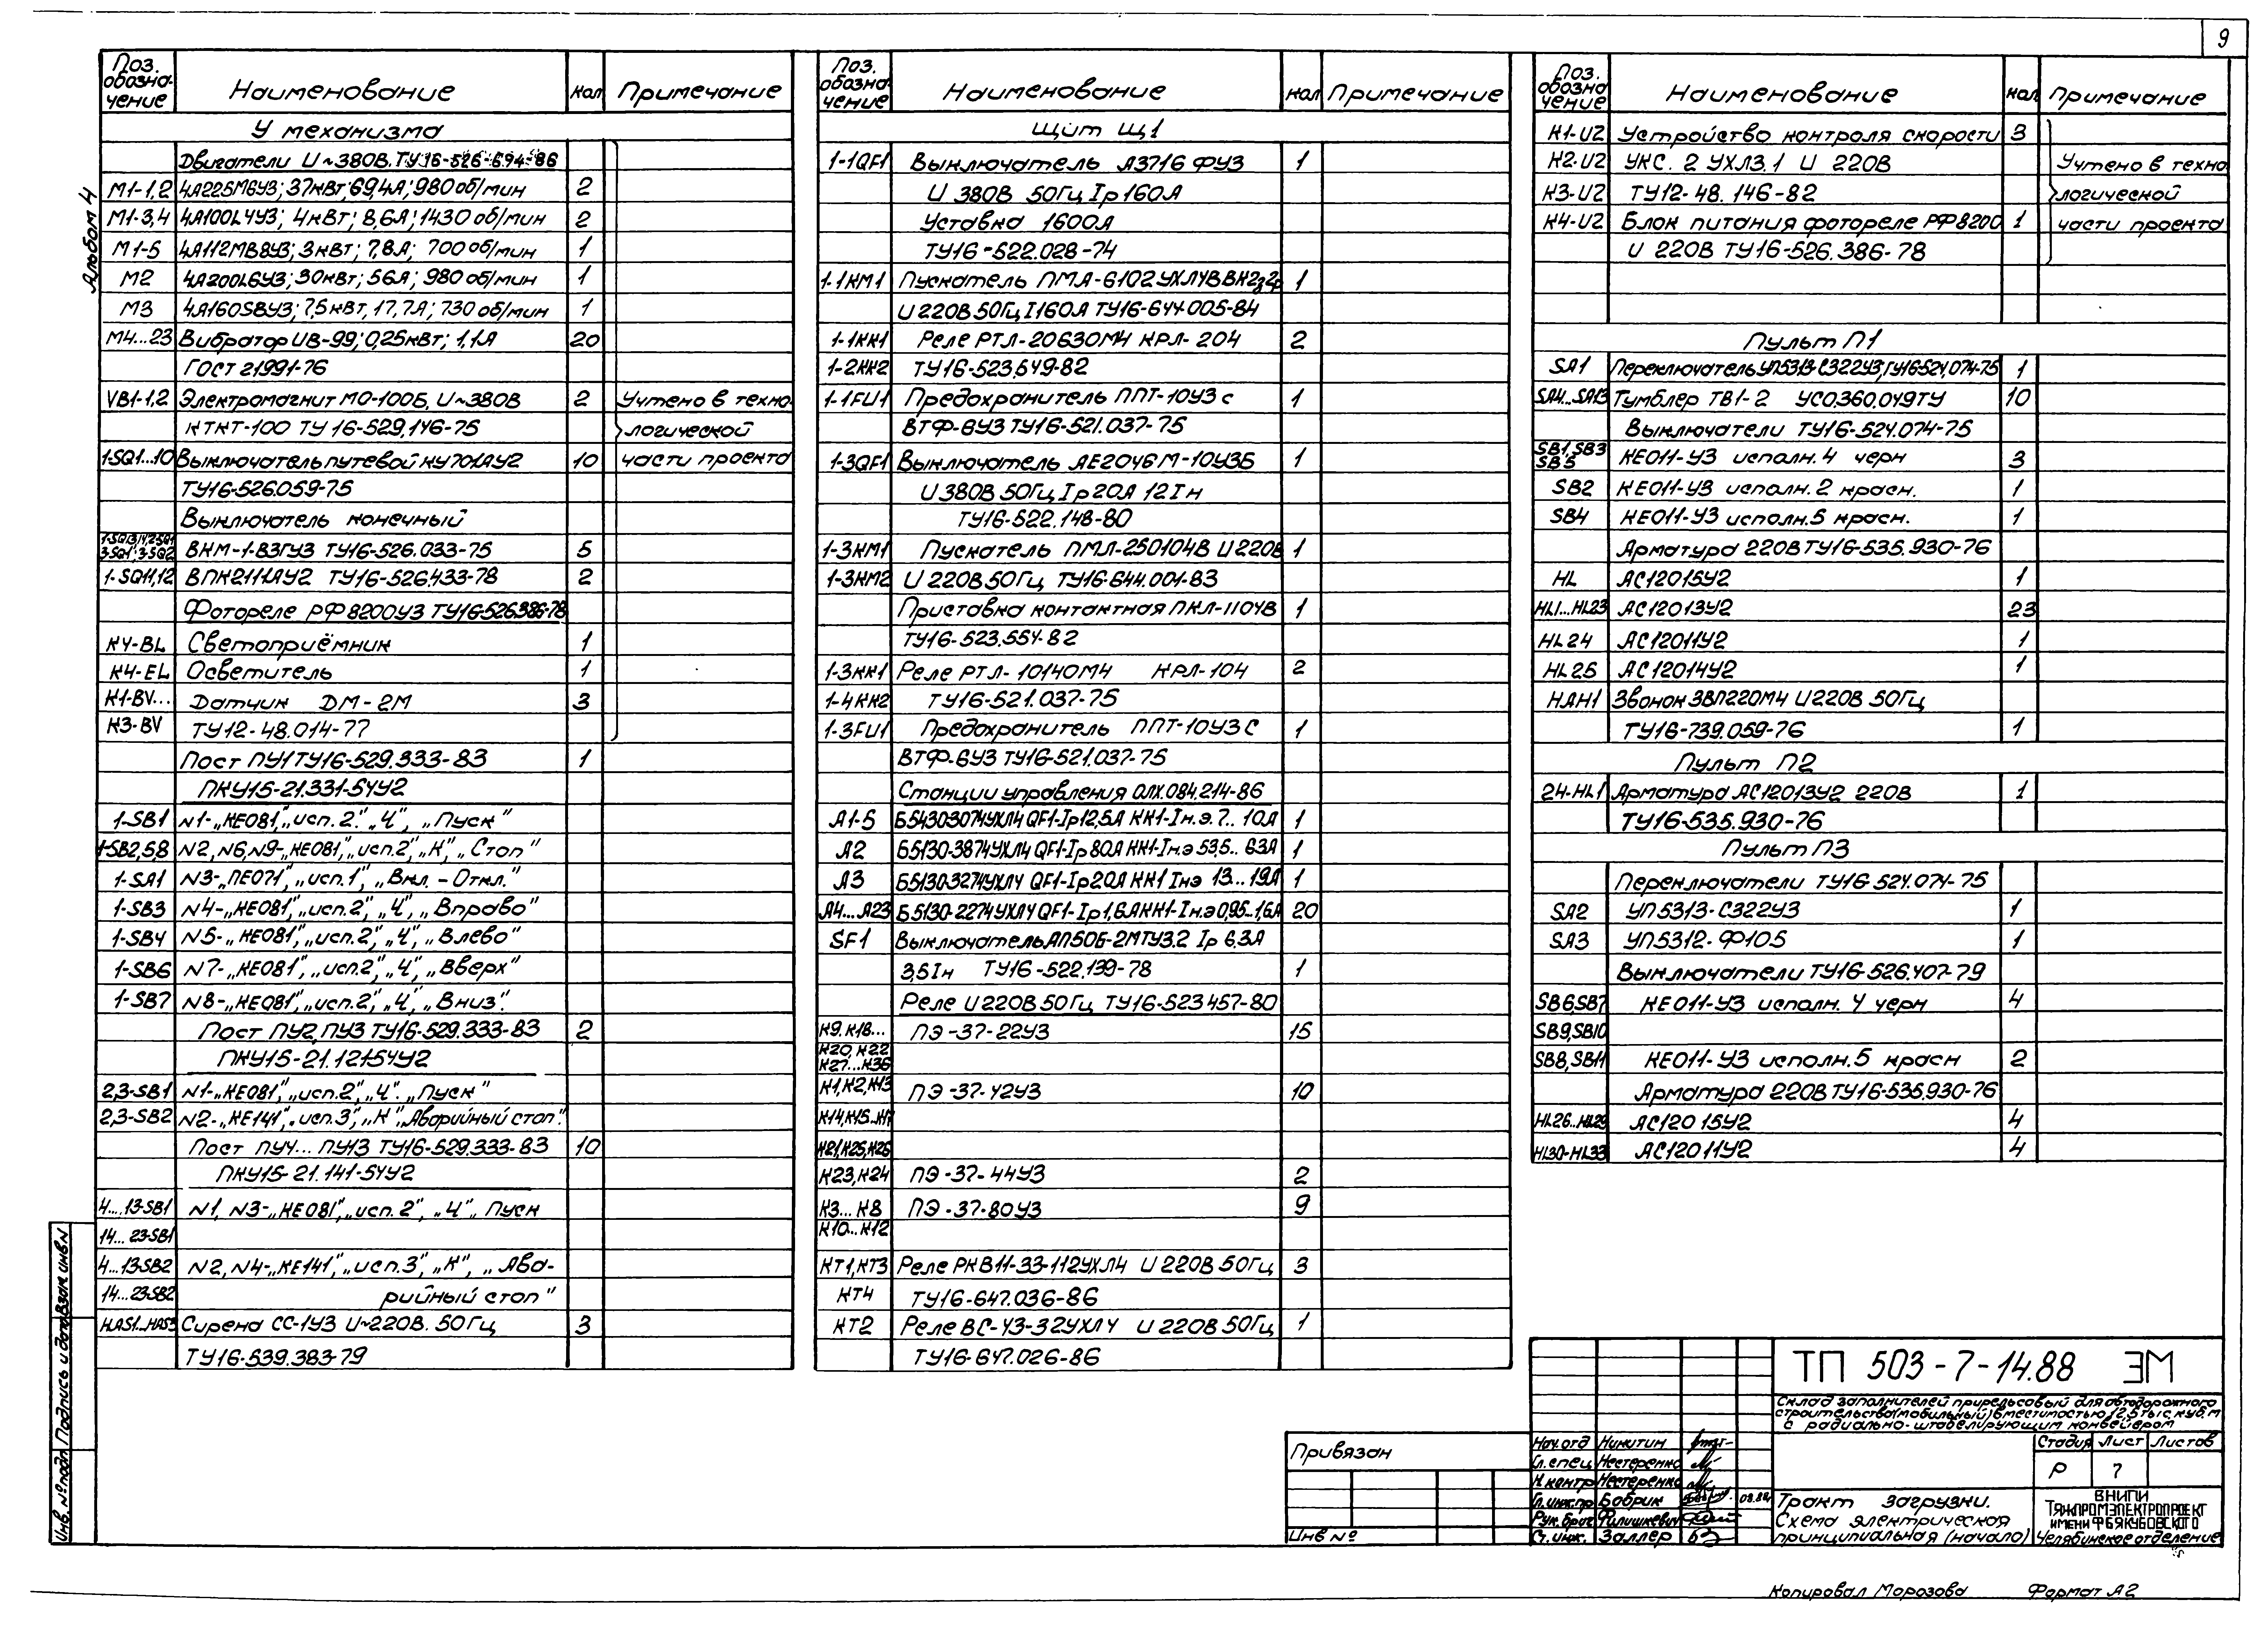 9
Альбом 4
Поз. обозна-чение Наименование кол Примечание
У механизма
Двигатели U~380В. ТУ16-526-694-86
М1-1,2 4А225М6У3; 37кВт; 69,4А; 980 об/мин 2
М1-3,4 4А100L4У3; 4кВт; 8,6А; 1430 об/мин 2
М1-5 4А112МВ8У3; 3кВт; 7,8А; 700 об/мин 1
М2 4А200L6У3; 30кВт; 56А; 980 об/мин 1
М3 4А160S8У3; 7,5кВт, 17,7А; 730 об/мин 1
М4...23 Вибратор ИВ-99; 0,25кВт; 1,1А 20
ГОСТ 21991-76
VB1-1,2 Электромагнит МО-100Б, U~380В 2 Учтено в техно-
КТКТ-100 ТУ 16-529.146-75 логической
1-SQ1...10 Выключатель путевой КУ701АУ2 10 части проекта
ТУ16-526.059-75
Выключатель конечный
ВКМ-1-ВЗГУ3 ТУ16-526.033-75 5
1-SQ11,12 ВПК2111АУ2 ТУ16-526.433-78 2
Фотореле РФ8200У3 ТУ16-526.386-78
К4-BL Светоприёмник 1
К4-EL Осветитель 1
К1-BV... Датчик ДМ-2М 3
К3-BV ТУ12-48.014-77
Пост ПУ1 ТУ16-529.333-83 1
ПКУ15-21.331-54У2
1-SB1 N1-„КЕ081", „исп.2" „Ч", „Пуск"
1-SB2,5,8 N2, N6, N9-„КЕ081", „исп.2", „К", „Стоп"
1-SA1 N3-„ПЕ071", „исп.1", „Вкл. - Откл."
1-SB3 N4-„КЕ081", „исп.2", „Ч", „Вправо"
1-SB4 N5-„КЕ081", „исп.2", „Ч", „Влево"
1-SB6 N7-„КЕ081", „исп.2", „Ч", „Вверх"
1-SB7 N8-„КЕ081", „исп.2", „Ч", „Вниз".
Пост ПУ2, ПУ3 ТУ16-529.333-83 2
ПКУ15-21.121-54У2
2,3-SB1 N1-„КЕ081", „исп.2", „Ч". „Пуск"
2,3-SB2 N2-„КЕ141", „исп.3", „К" „Аварийный стоп".
Пост ПУ4... ПУ13 ТУ16-529.333-83 10
ПКУ15-21.141-54У2
4...13-SB1 N1, N3-„КЕ081", „исп.2", „Ч", Пуск
14...23-SB1
4...13-SB2 N2, N4-„КЕ141", „исп.3", „К", „Ава-
14...23-SB2 рийный стоп"
HAS1...HAS3 Сирена СС-1У3 U~220В. 50Гц 3
ТУ16-539.383-79
Поз. обозна-чение Наименование кол Примечание
Щит Щ1
1-1QF1 Выключатель А3716 ФУЗ 1
U 380В 50Гц Iр 160А
Уставка 1600А
ТУ16-522.028-74
1-1КМ1 Пускатель ПМА-6102 УХЛ4В ВК2з2р 1
U 220В 50Гц I160А ТУ16-644.005-84
1-1КК1 Реле РТЛ-20630М4 КРЛ-204 2
1-2КК2 ТУ16-523.549-82
1-1FU1 Предохранитель ППТ-10У3 с 1
ВТФ-6У3 ТУ16-521.037-75
1-3QF1 Выключатель АЕ2046М-10У3Б 1
U 380В 50Гц Iр 20А 12Iн
ТУ16-522.148-80
1-3КМ1 Пускатель ПМЛ-250104В U 220В 1
1-3КМ2 U 220В 50Гц ТУ16-644.001-83
Приставка контактная ПКЛ-1104В 1
ТУ16-523.554-82
1-3КК1 Реле РТЛ-10140М4 КРЛ-104 2
1-4КК2 ТУ16-521.037-75
1-3FU1 Предохранитель ППТ-10У3 С 1
ВТФ-6У3 ТУ16-521.037-75
Станции управления ОЛХ.084.214-86
А1-5 Б5430-3074УХЛ4 QF1-Iр12,5А КК1-Iн.э.7..10А 1
А2 Б5130-3874УХЛ4 QF1-Iр80А КК1-Iн.э 53,5..63А 1
А3 Б5130-3274УХЛ4 QF1-Iр20А КК1 Iнэ 13...19А 1
А4...А23 Б5130-2274УХЛ4 QF1-Iр1,6А КК1-Iн.э 0,95..1,6А 20
SF1 Выключатель АП50Б-2МТУ3.2 Iр 6,3А
3,5Iн ТУ16-522.139-78 1
Реле U 220В 50Гц ТУ16-523.457-80
К9, К18... ПЭ-37-22У3 15
К20, К22
К27...К36
К1, К2, К13 ПЭ-37-42У3 10
К14, К15...К17
К21, К25, К26
К23, К24 ПЭ-37-44У3 2
К3...К8 ПЭ-37-80У3 9
К10...К12
КТ1, КТ3 Реле РКВ11-33-112УХЛ4 U 220В 50Гц 3
КТ4 ТУ16-647.036-86
КТ2 Реле ВС-43-32УХЛ4 U 220В 50Гц 1
ТУ16-647.026-86
Поз. обозна-чение Наименование кол Примечание
К1-U2 Устройство контроля скорости 3
К2-U2 УКС. 2 УХЛ3.1 U 220В Учтено в техно
К3-U2 ТУ12-48.146-82 логической
К4-U2 Блок питания фотореле РФ8200 1 части проекта
U 220В ТУ16-526.386-78
Пульт П1
SA1 Переключатель УП5313-С322У3, ТУ16-524.074-75 1
SA4...SA13 Тумблер ТВ1-2 УСО.360.049ТУ 10
Выключатели ТУ16-524.074-75
SB1, SB3 SB5 КЕ011-У3 исполн. 4 черн 3
SB2 КЕ011-У3 исполн. 2 красн. 1
SB4 КЕ011-У3 исполн. 5 красн. 1
Арматура 220В ТУ16-535.930-76
HL АС12015У2 1
HL1...HL23 АС12013У2 23
HL24 АС12011У2 1
HL25 АС12014У2 1
HAH1 Звонок ЗВП220М4 U 220В 50Гц
ТУ16-739.059-76 1
Пульт П2
24-HL1 Арматура АС12013У2 220В 1
ТУ16-535.930-76
Пульт П3
Переключатели ТУ16-524.074-75
SA2 УП5313-С322У3 1
SA3 УП5312-Ф105 1
Выключатели ТУ16-526.407-79
SB6, SB7 КЕ011-У3 исполн. 4 черн 4
SB9, SB10
SB8, SB11 КЕ011-У3 исполн. 5 красн 2
Арматура 220В ТУ16-535.930-76
HL26...HL29 АС12015У2 4
HL30-HL33 АС12011У2 4
ТП 503-7-14.88 ЭМ
Склад заполнителей прирельсовый для автодорожного
строительства (мобильный) вместимостью 12,5 тыс. куб. м
с радиально-штабелирующим конвейером
Привязан
Инв №
Нач. отд Никитин
Гл. спец Нестеренко
Н. контр Нестеренко
Гл. инж. пр Бобрик
Рук. бриг Филишкевич
Ст. инж. Заллер
Стадия Лист Листов
Р 7
Тракт загрузки.
Схема электрическая
принципиальная (начало)
ВНИПИ
ТЯЖПРОМЭЛЕКТРОПРОЕКТ
ИМЕНИ Ф Б ЯКУБОВСКОГО
Челябинское отделение
Инв. № подл Подпись и дата Взам. инв N
Копировал Морозова Формат А2